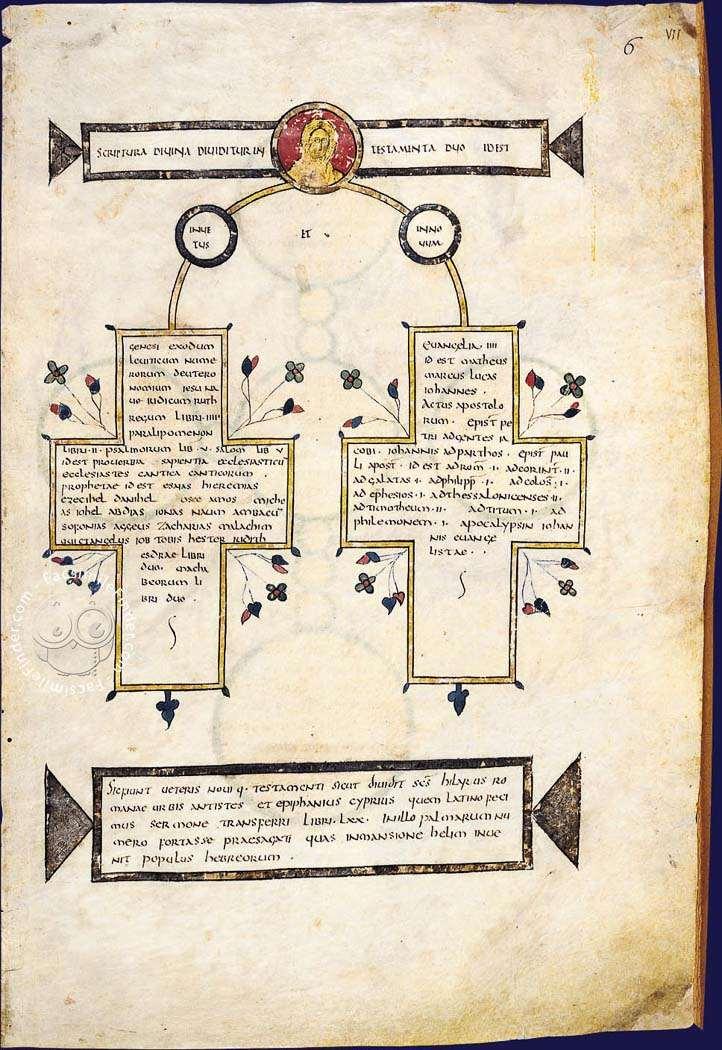 6 VII
SCRIPTURA DIVINA DIVIDITUR IN TESTAMINTA DUO IDEST
IN VE
TUS
ET
IN NO
VUM
GENESI EXODUM
LEVITICUM NUME
RORUM DEUTERO
NOMIUM IESU NA
VE IUDICUM RUTH
REGUM LIBRI · IIII
PARALIPOMENON
LIBRI · II · PSALMORUM LIB · V · SALOM LIB V
ID EST PROVERBIA SAPIENTIA ECCLESIASTICU
ECCLESIASTES CANTICA CANTICORUM ·
PROPHETAE ID EST ESAIAS HIEREMIAS
EZECIHEL DANIHEL OSEE AMOS MICHE
AS IOHEL ABDIAS IONAS NAUM AMBACU
SOFONIAS AGGEUS ZACHARIAS MALACHIM
QUI ET ANGELUS IOB TOBIS HESTER IUDITH
ESDRAE LIBRI
DUO · MACHA
BEORUM LI
BRI DUO ·
EVANGELIA · IIII
ID EST MATHEUS
MARCUS LUCAS
IOHANNES ·
ACTUS APOSTOLO
RUM · EPIST PE
TRI AD GENTES IA
COBI · IOHANNIS AD PARTHOS · EPIST PAU
LI APOST · ID EST AD ROM · I · AD CORINT · II ·
AD GALATAS · I · AD PHILIPP · I · AD COLOS · I ·
AD EPHESIOS · I · AD THESSALONICENSES · II ·
AD TIMOTHEUM · II · AD TITUM · I · AD
PHILEMONEM · I · APOCALYPSIN IOHAN
NIS EUANGE
LISTAE ·
SIC FIUNT VETERIS NOVI Q · TESTAMENTI SICUT DIVIDIT SCS HILARUS RO
MANAE URBIS ANTISTES ET EPIPHANIUS CYPRIUS QUEM LATINO FECI
MUS SERMONE TRANSFERRI LIBRI · LXX · IN ILLO PALMARUM NU
MERO FORTASSE PRAESAGATI QUAS IN MANSIONE HELIM INVE
NIT POPULUS HEBREORUM ·
facsimilefinder.com facsimilefinder.com